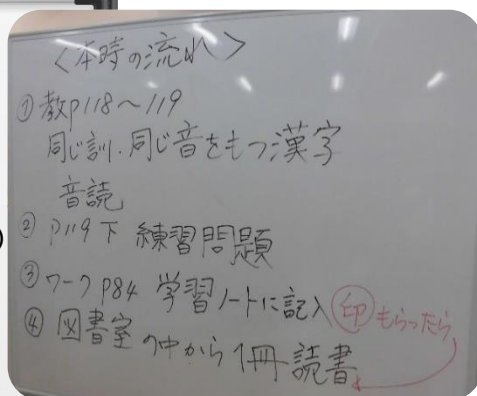 <本時の流れ>
①教P118〜119
同じ訓.同じ音をもつ漢字
音読
②P119下 練習問題
③ワークP84 学習ノートに記入 ㊞もらったら
④図書室の中から1冊読書